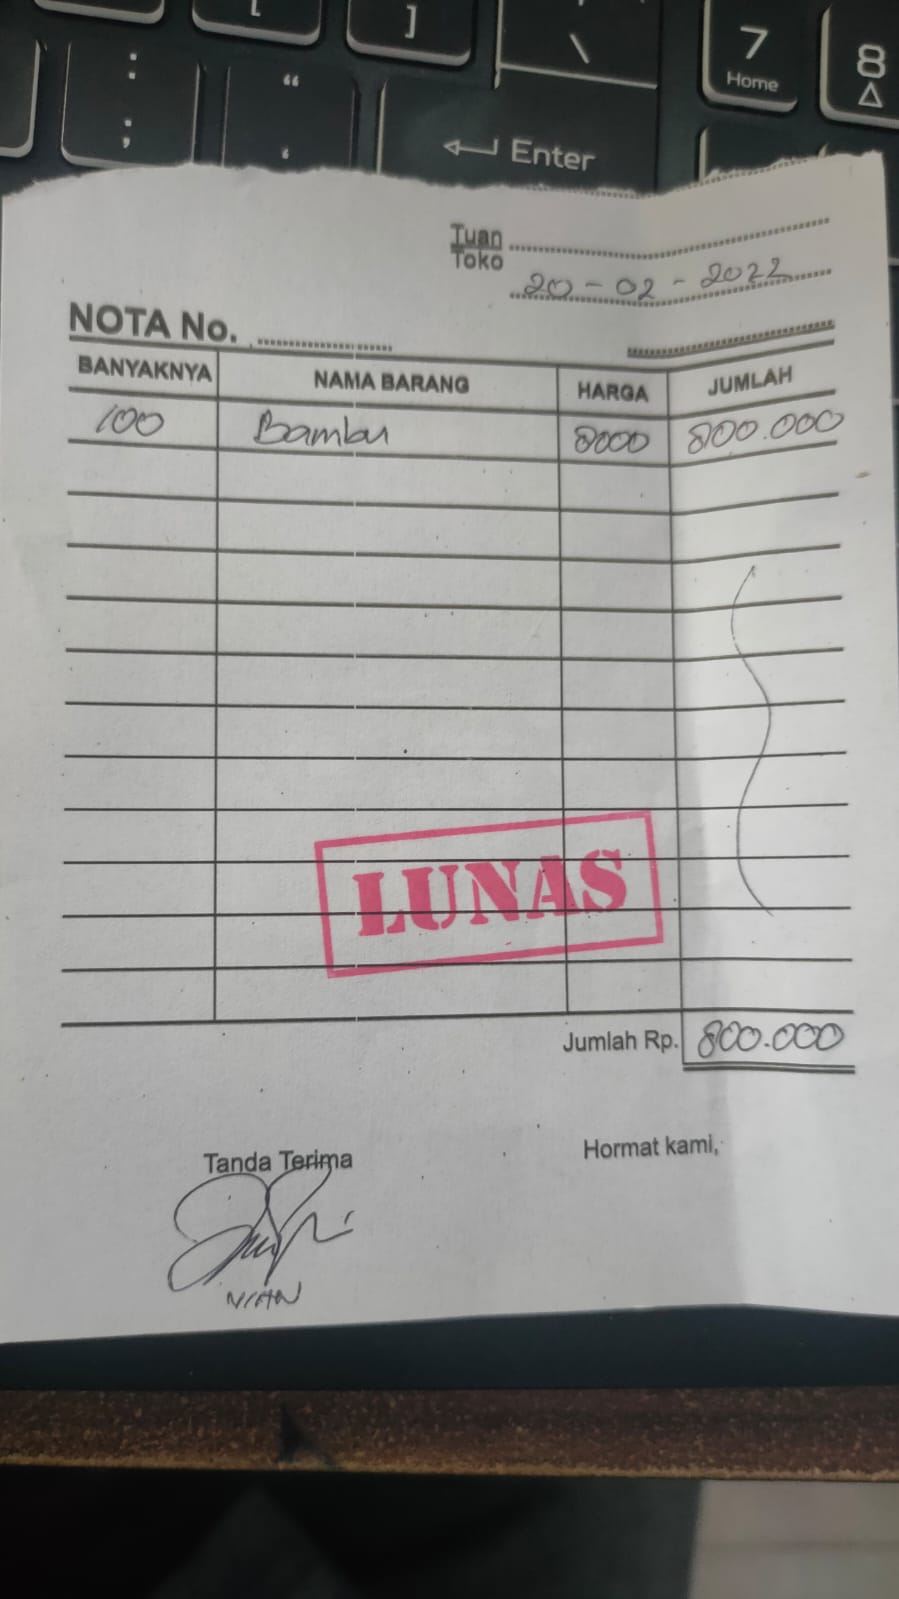 [
]
\
7
Home
8
:
;
“
‘
Enter
Tuan
Toko
20 - 02 - 2022
NOTA No.
BANYAKNYA NAMA BARANG HARGA JUMLAH
100 Bambu 8000 800.000
LUNAS
Jumlah Rp. 800.000
Tanda Terima Hormat kami,